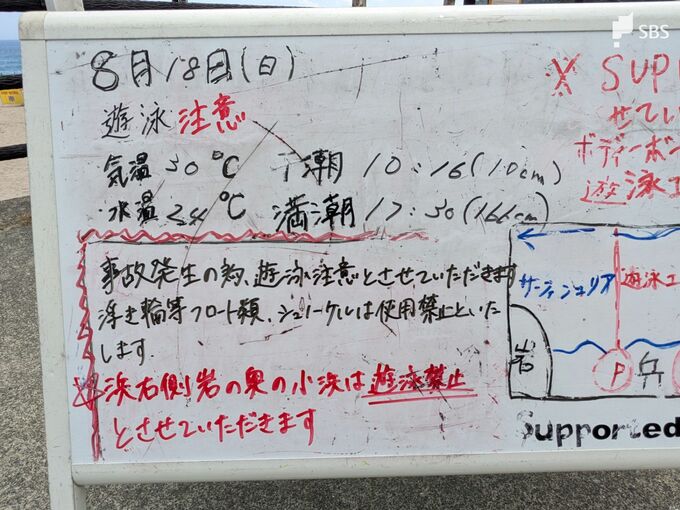 SBS
8月18日(日)
遊泳注意
気温 30℃ 干潮 10:16(10cm)
水温 24℃ 満潮 17:30(166cm)
事故発生の為、遊泳注意とさせていただきます
浮き輪等フロート類、シュノーケルは使用禁止といた
します.
※浜右側岩の奥の小浜は遊泳禁止
とさせていただきます
※SUP
せてい
ボディーボー
遊泳エ
サーフィンエリア
遊泳エ
岩
P
兵
Supported